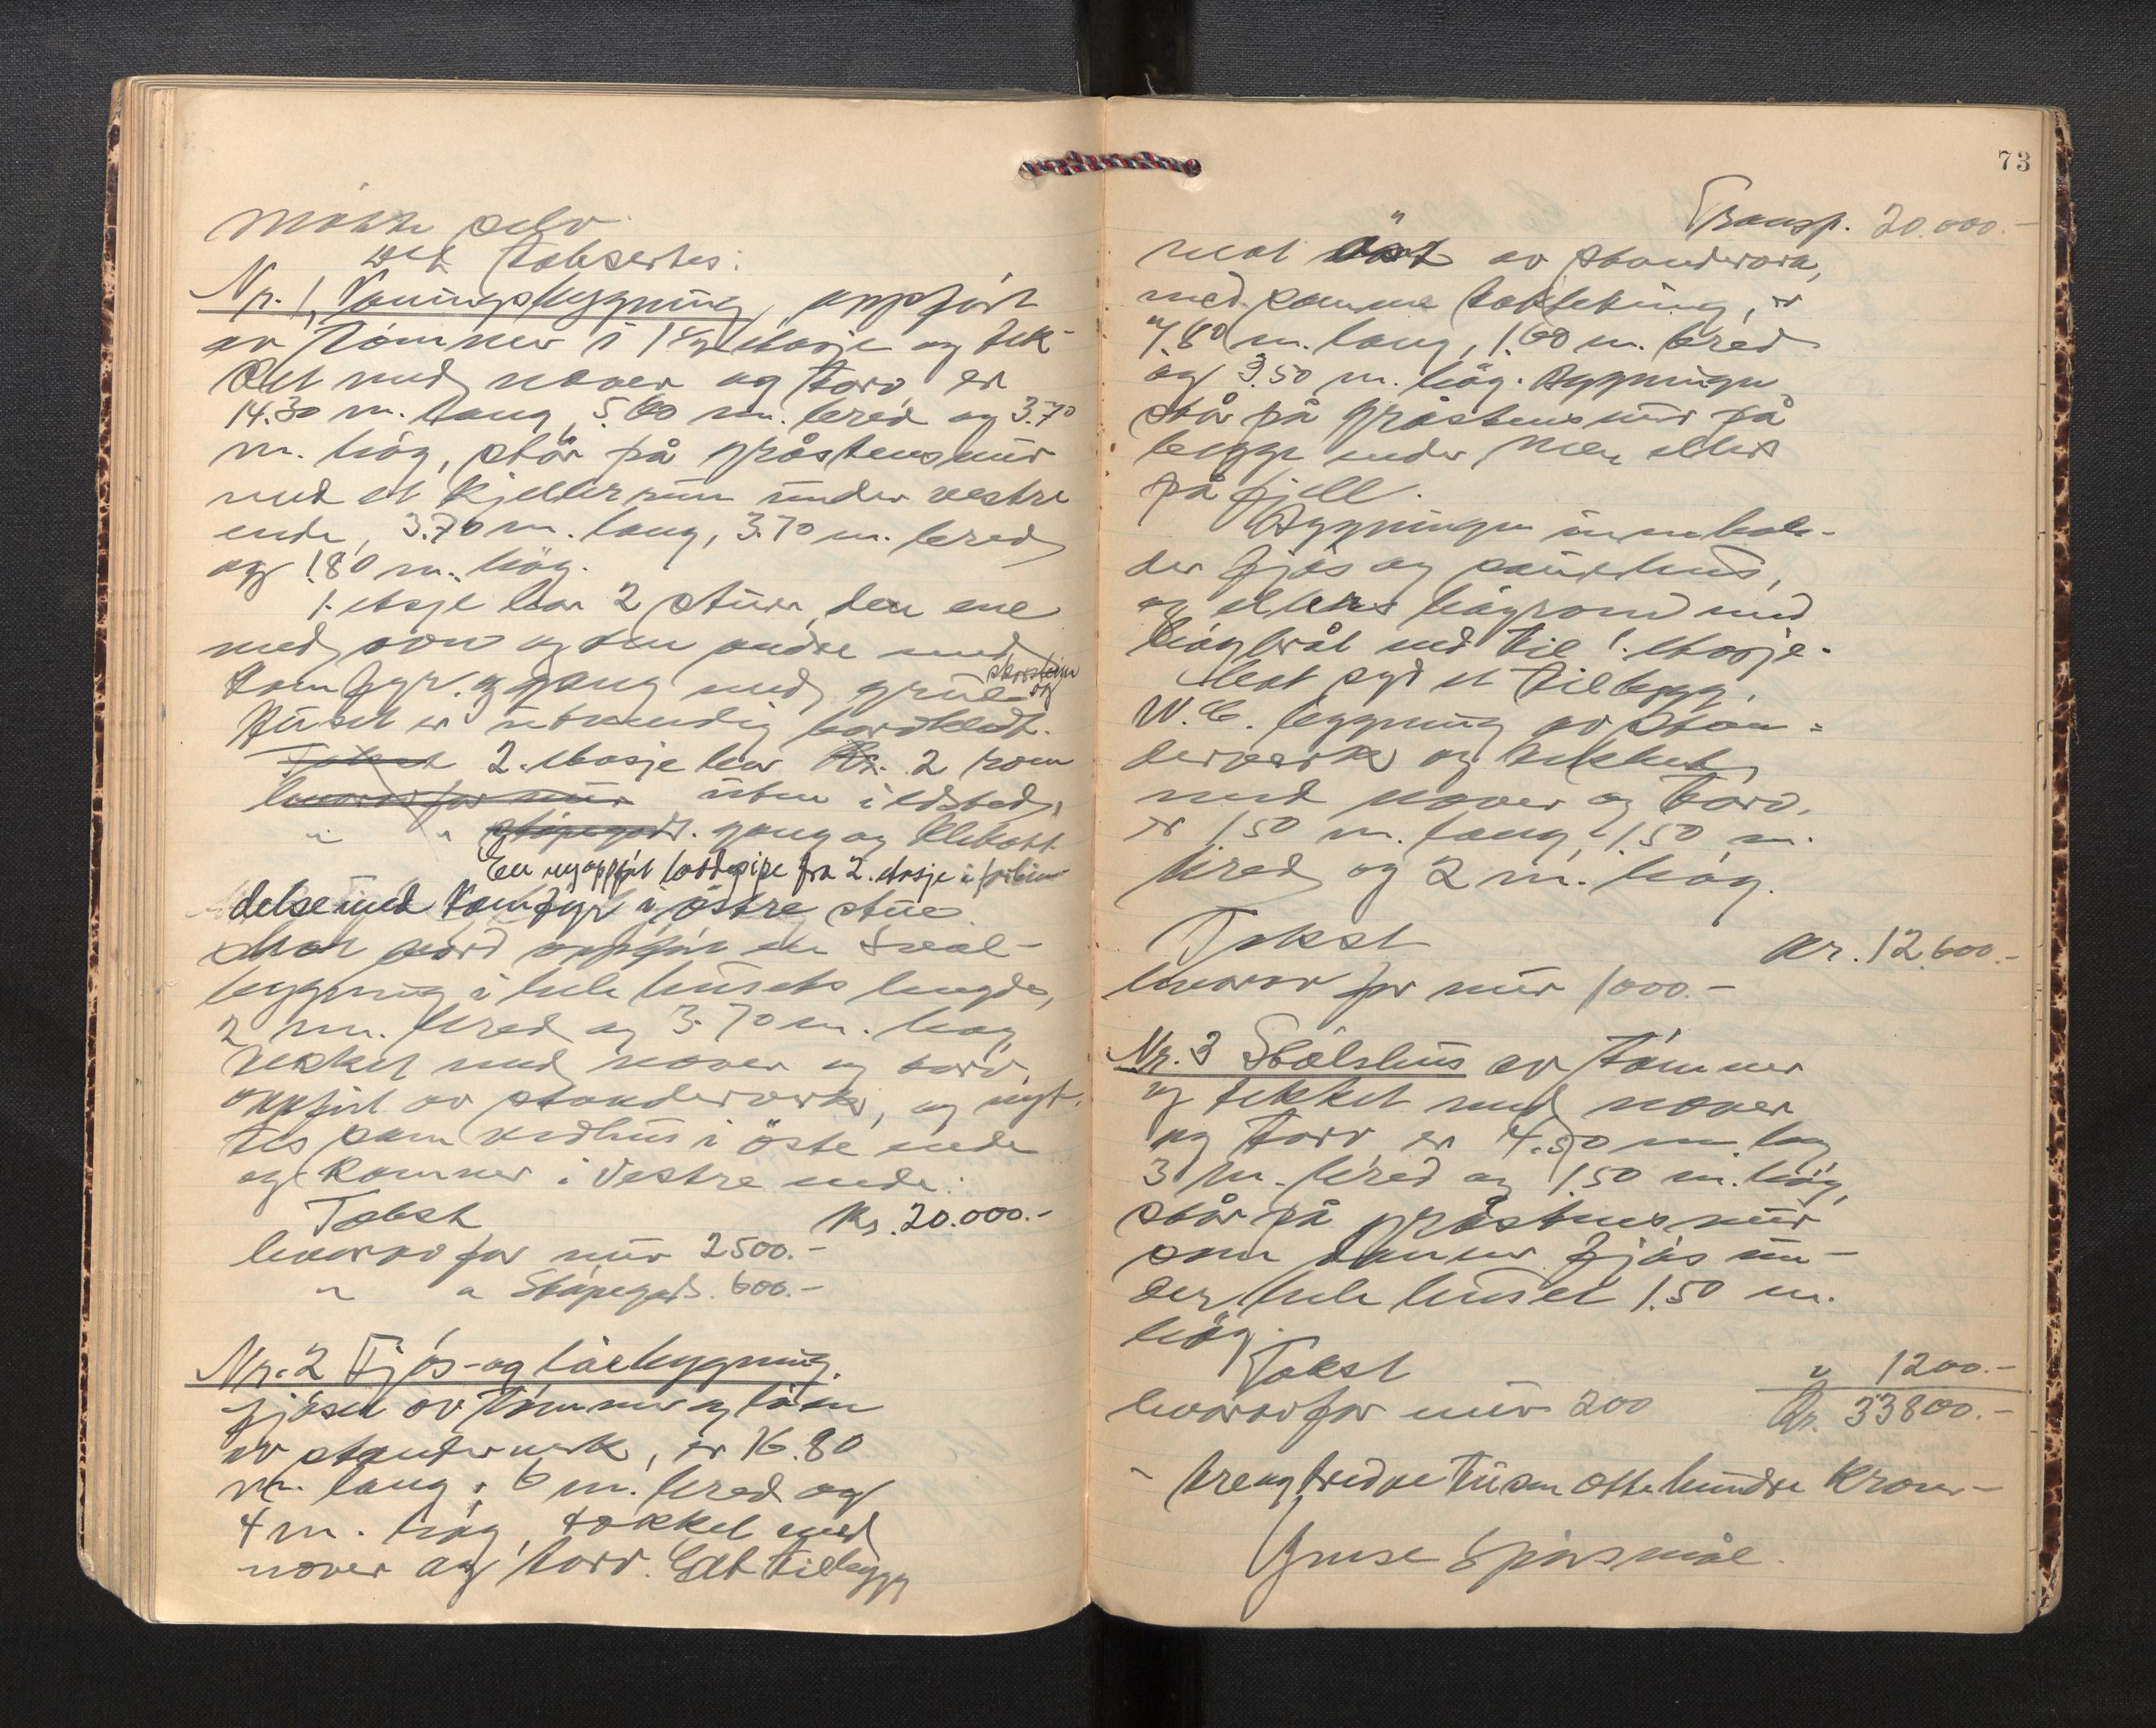 møtte selv
Det takseres:
Nr. 1, Våningsbygning, oppført
av tømmer i 1 1/2 etasje og tek-
ket med never og torv er
14.30 m. lang, 5.60 m. bred og 3.70
m. høg, står på gråstensmur
med et kjellerrum under vestre
ende, 3.70 m. lang, 3.70 m. bred
og 1.80 m. høg.
1. etasje har 2 stuer, den ene
med ovn og den andre med
komfyr. og gang med grue
skorstein og
Huset er utvendig bordkledt.
Takst 2. etasje har 2 rom
hvorav for mur uten ildsted,
" " støpegods. gang og klebott
En ny oppført loddpipe fra 2. etasje i forbin-
delse med komfyr i østre stue
Mot nord oppført en sval-
bygning i hele husets lengde,
2 m. bred og 3.70 m. høg
tekket med never og torv,
oppført av standerverk, og nyt-
tes som vedhus i østre ende
og kammer i vestre ende.
Takst Kr. 20.000.-
hvorav for mur 2500.-
" " Støpegods. 600.-
Nr. 2 Fjøs- og låebygning.
fjøset av tømmer og låen
av standerverk, er 16.80
m. lang, 6 m. bred og
4 m. høg, tekket med
never og torv. Et tilbygg
73
Transp. 20.000.-
mot øst av standerverk,
med samme taktekning, er
7.80 m. lang, 1.60 m. bred
og 3.50 m. høg. Bygningen
står på gråstensmur på
begge ender men ellers
på fjell.
Bygningen innehol-
der fjøs og sauehus,
og ellers høyrom med
ned til 1. etasje.
Mot syd et tilbygg,
W.C. bygning av stan-
derverk og tekket
med never og torv.
er 1.50 m. lang, 1.50 m.
bred og 2 m. høg.
Takst Kr. 12.600.-
hvorav for mur 1000.-
Nr. 3 Stølshus av tømmer
og tekket med never
og torv er 4.50 m. lang
3 m. bred og 1.50 m. høg,
står på gråstensmur
som danner fjøs un-
der hele huset 1.50 m.
høg.
Takst " 1200.-
hvorav for mur 200 Kr. 33800.-
- treogtredve tusen ottehundre kroner -